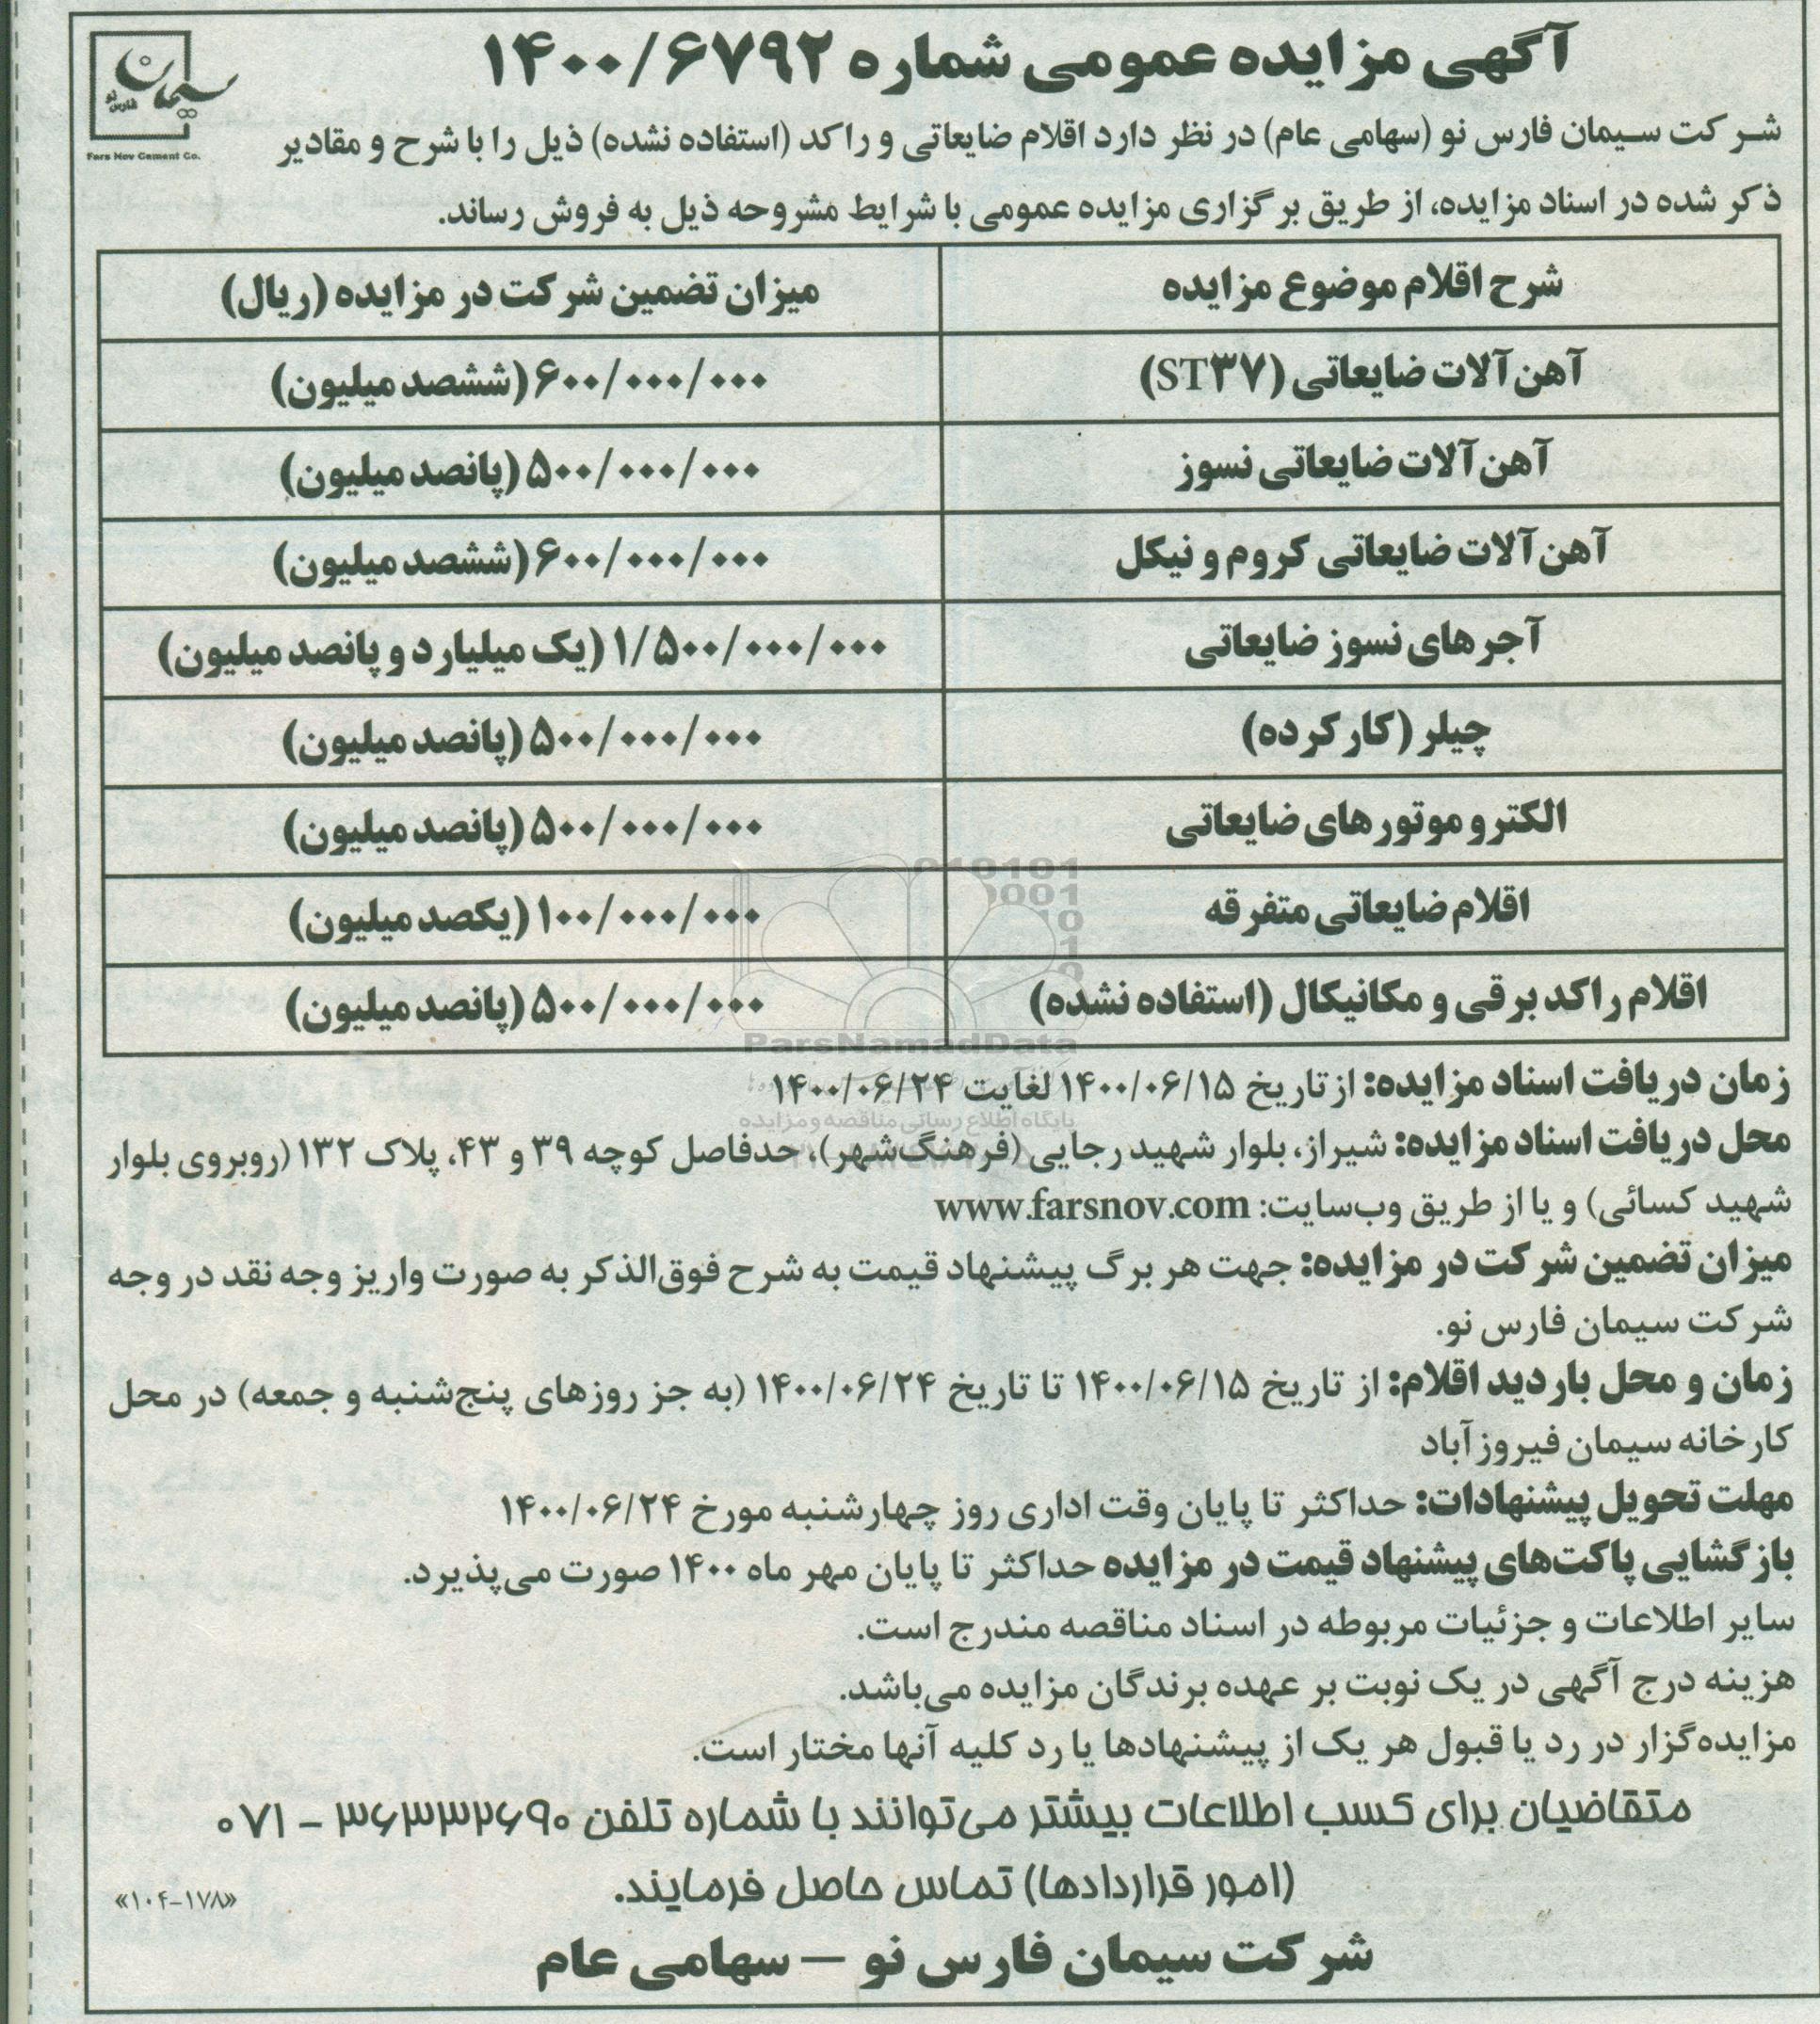 آگهی مزایده عمومی شماره ۱۴۰۰/۶۷۹۲
سیمان
فارس نو
Fars Nov Cement Co.
شرکت سیمان فارس نو (سهامی عام) در نظر دارد اقلام ضایعاتی و راکد (استفاده نشده) ذیل را با شرح و مقادیر
ذکر شده در اسناد مزایده، از طریق برگزاری مزایده عمومی با شرایط مشروحه ذیل به فروش رساند.
شرح اقلام موضوع مزایده میزان تضمین شرکت در مزایده (ریال)
آهن‌آلات ضایعاتی (ST۳۷) ۶۰۰/۰۰۰/۰۰۰ (ششصد میلیون)
آهن‌آلات ضایعاتی نسوز ۵۰۰/۰۰۰/۰۰۰ (پانصد میلیون)
آهن‌آلات ضایعاتی کروم و نیکل ۶۰۰/۰۰۰/۰۰۰ (ششصد میلیون)
آجرهای نسوز ضایعاتی ۱/۵۰۰/۰۰۰/۰۰۰ (یک میلیارد و پانصد میلیون)
چیلر (کارکرده) ۵۰۰/۰۰۰/۰۰۰ (پانصد میلیون)
الکتروموتورهای ضایعاتی ۵۰۰/۰۰۰/۰۰۰ (پانصد میلیون)
اقلام ضایعاتی متفرقه ۱۰۰/۰۰۰/۰۰۰ (یکصد میلیون)
اقلام راکد برقی و مکانیکال (استفاده نشده) ۵۰۰/۰۰۰/۰۰۰ (پانصد میلیون)
ParsNamadData
زمان دریافت اسناد مزایده: از تاریخ ۱۴۰۰/۰۶/۱۵ لغایت ۱۴۰۰/۰۶/۲۴
پایگاه اطلاع رسانی مناقصه و مزایده
محل دریافت اسناد مزایده: شیراز، بلوار شهید رجایی (فرهنگ‌شهر)، حدفاصل کوچه ۳۹ و ۴۳، پلاک ۱۳۲ (روبروی بلوار
شهید کسائی) و یا از طریق وب‌سایت: www.farsnov.com
میزان تضمین شرکت در مزایده: جهت هر برگ پیشنهاد قیمت به شرح فوق‌الذکر به صورت واریز وجه نقد در وجه
شرکت سیمان فارس نو.
زمان و محل بازدید اقلام: از تاریخ ۱۴۰۰/۰۶/۱۵ تا تاریخ ۱۴۰۰/۰۶/۲۴ (به جز روزهای پنج‌شنبه و جمعه) در محل
کارخانه سیمان فیروزآباد
مهلت تحویل پیشنهادات: حداکثر تا پایان وقت اداری روز چهارشنبه مورخ ۱۴۰۰/۰۶/۲۴
بازگشایی پاکت‌های پیشنهاد قیمت در مزایده حداکثر تا پایان مهر ماه ۱۴۰۰ صورت می‌پذیرد.
سایر اطلاعات و جزئیات مربوطه در اسناد مناقصه مندرج است.
هزینه درج آگهی در یک نوبت بر عهده برندگان مزایده می‌باشد.
مزایده‌گزار در رد یا قبول هر یک از پیشنهادها یا رد کلیه آنها مختار است.
متقاضیان برای کسب اطلاعات بیشتر می‌توانند با شماره تلفن ۳۶۳۳۲۶۹۰ - ۰۷۱
(امور قراردادها) تماس حاصل فرمایند.
«۱۰۴-۱۷۸»
شرکت سیمان فارس نو – سهامی عام